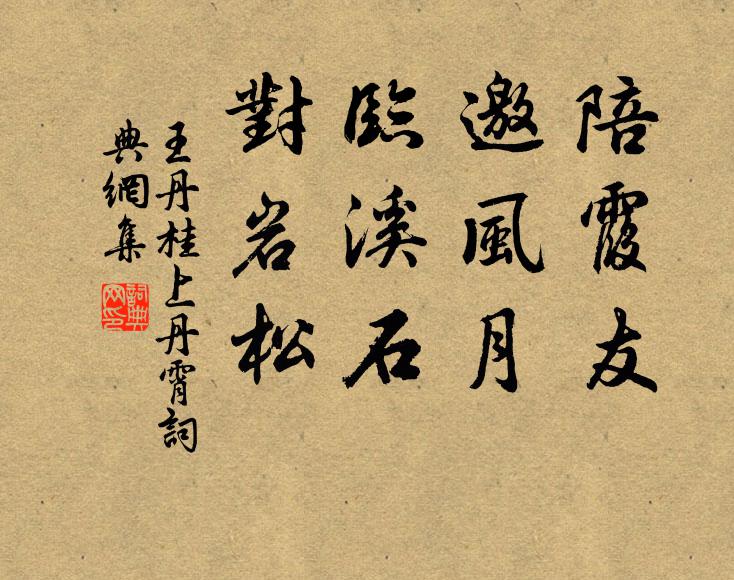 陪霞友
邀風月
臨溪石
對岩松
王丹桂上丹霄詞
典網集
詞典網印